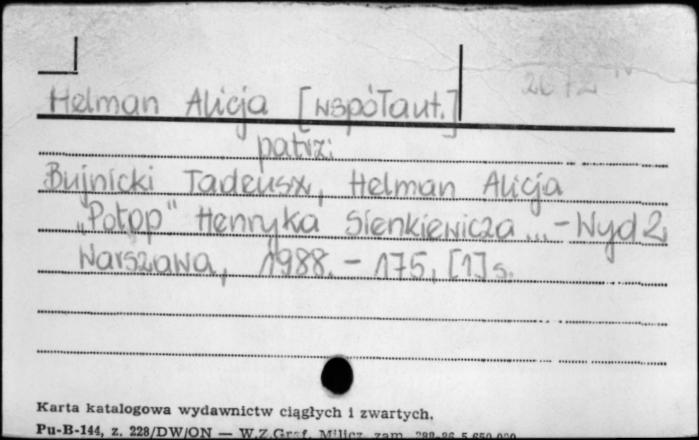 Helman Alicja [współaut.]
patrz:
Bujnicki Tadeusz, Helman Alicja
„Potop" Henryka Sienkiewicza ... - Wyd 2
Warszawa, 1988. - 175, [1] s.
Karta katalogowa wydawnictw ciągłych i zwartych.
Pu-B-144, z. 228/DW/ON — W.Z.Graf. Milicz, zam.